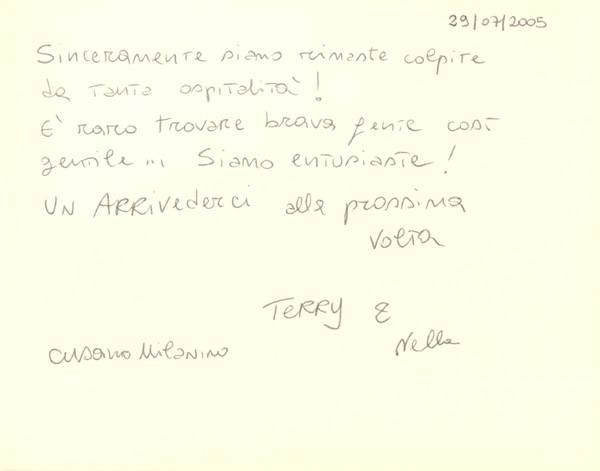 29/07/2005
Sinceramente siamo rimaste colpite
da tanta ospitalità!
E' raro trovare brava gente così
gentile... Siamo entusiaste!
UN ARRIVederci alla prossima
volta
TERRY E
Nella
Cusano Milanino